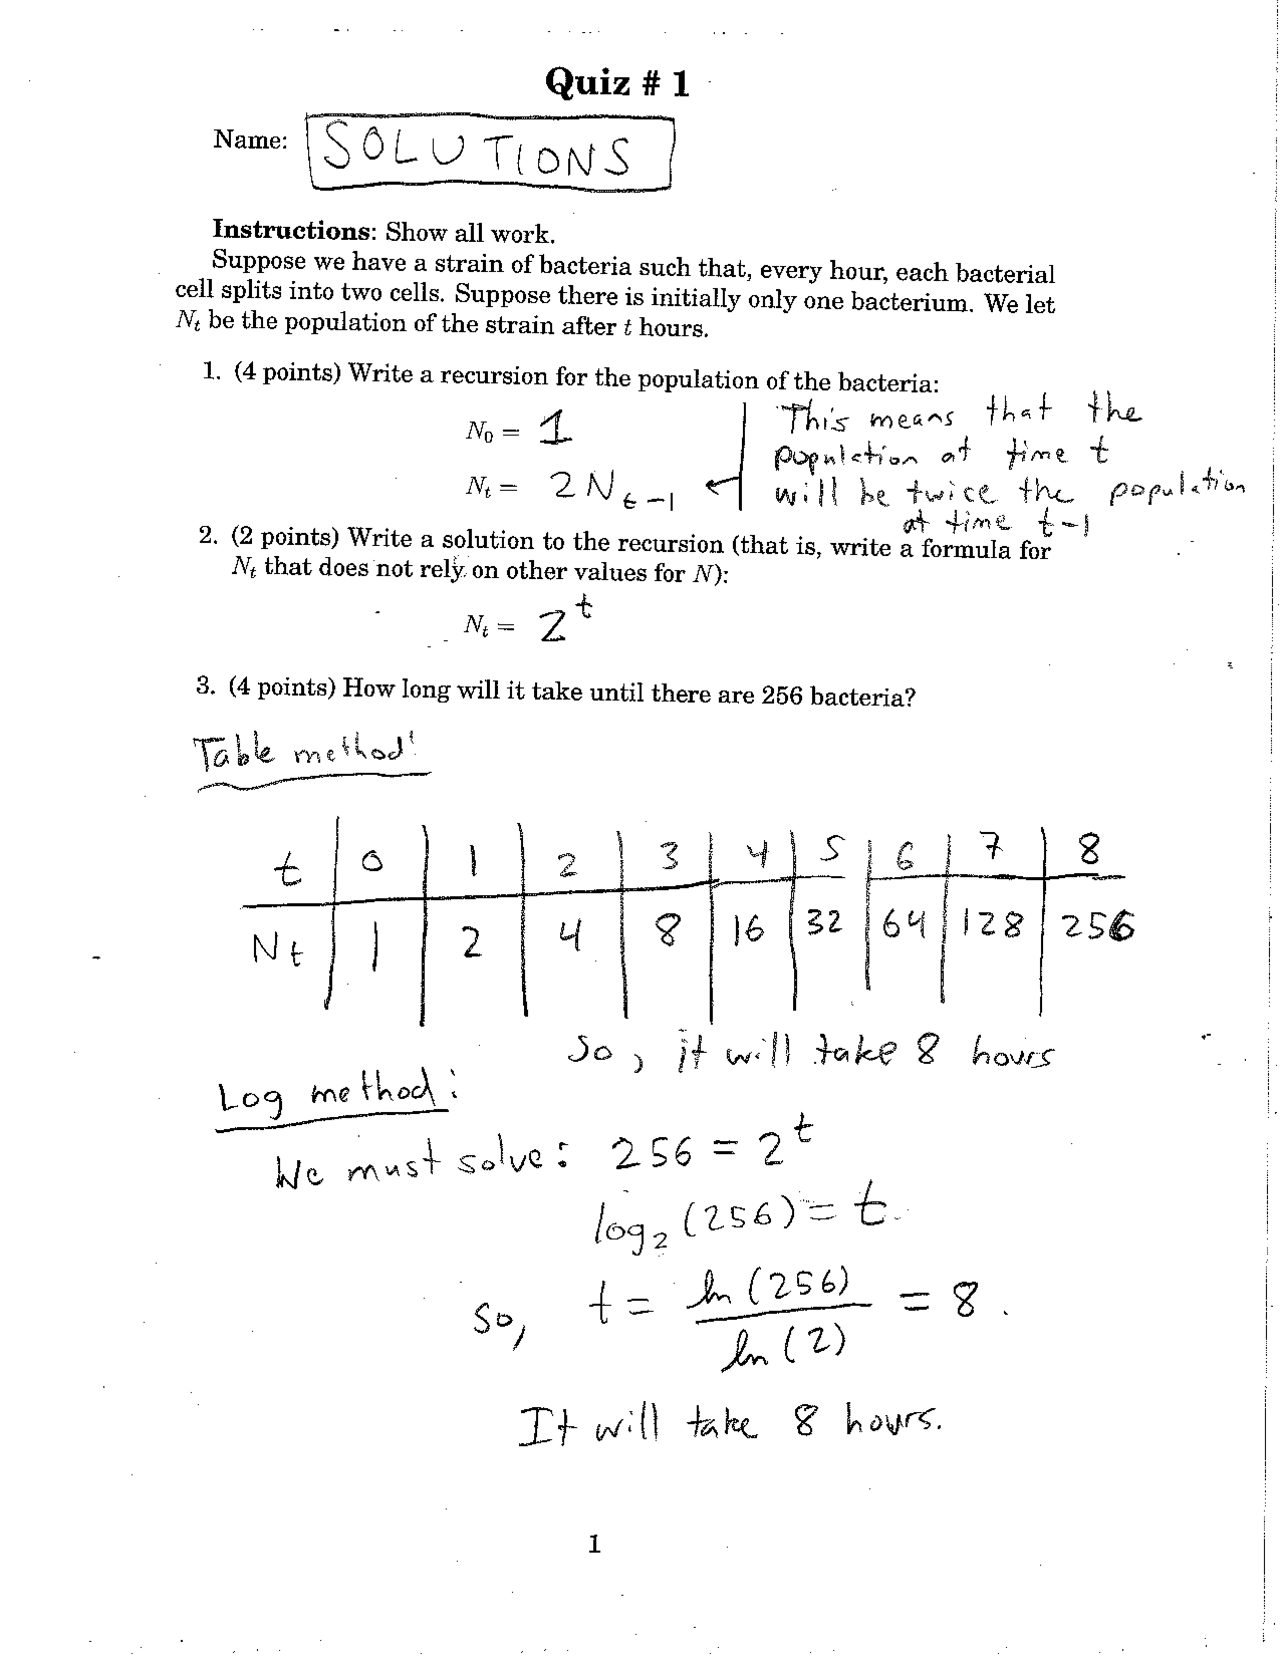 Quiz # 1
Name: SOLUTIONS
Instructions: Show all work.
Suppose we have a strain of bacteria such that, every hour, each bacterial
cell splits into two cells. Suppose there is initially only one bacterium. We let
Nₜ be the population of the strain after t hours.
1. (4 points) Write a recursion for the population of the bacteria:
N₀ = 1
Nₜ = 2Nₜ₋₁
This means that the
population at time t
will be twice the population
at time t-1
2. (2 points) Write a solution to the recursion (that is, write a formula for
Nₜ that does not rely on other values for N):
Nₜ = 2^t
3. (4 points) How long will it take until there are 256 bacteria?
Table method:
t 0 1 2 3 4 5 6 7 8
Nt 1 2 4 8 16 32 64 128 256
So, it will take 8 hours
Log method:
We must solve: 256 = 2^t
log₂(256) = t.
So, t = ln(256) / ln(2) = 8.
It will take 8 hours.
1